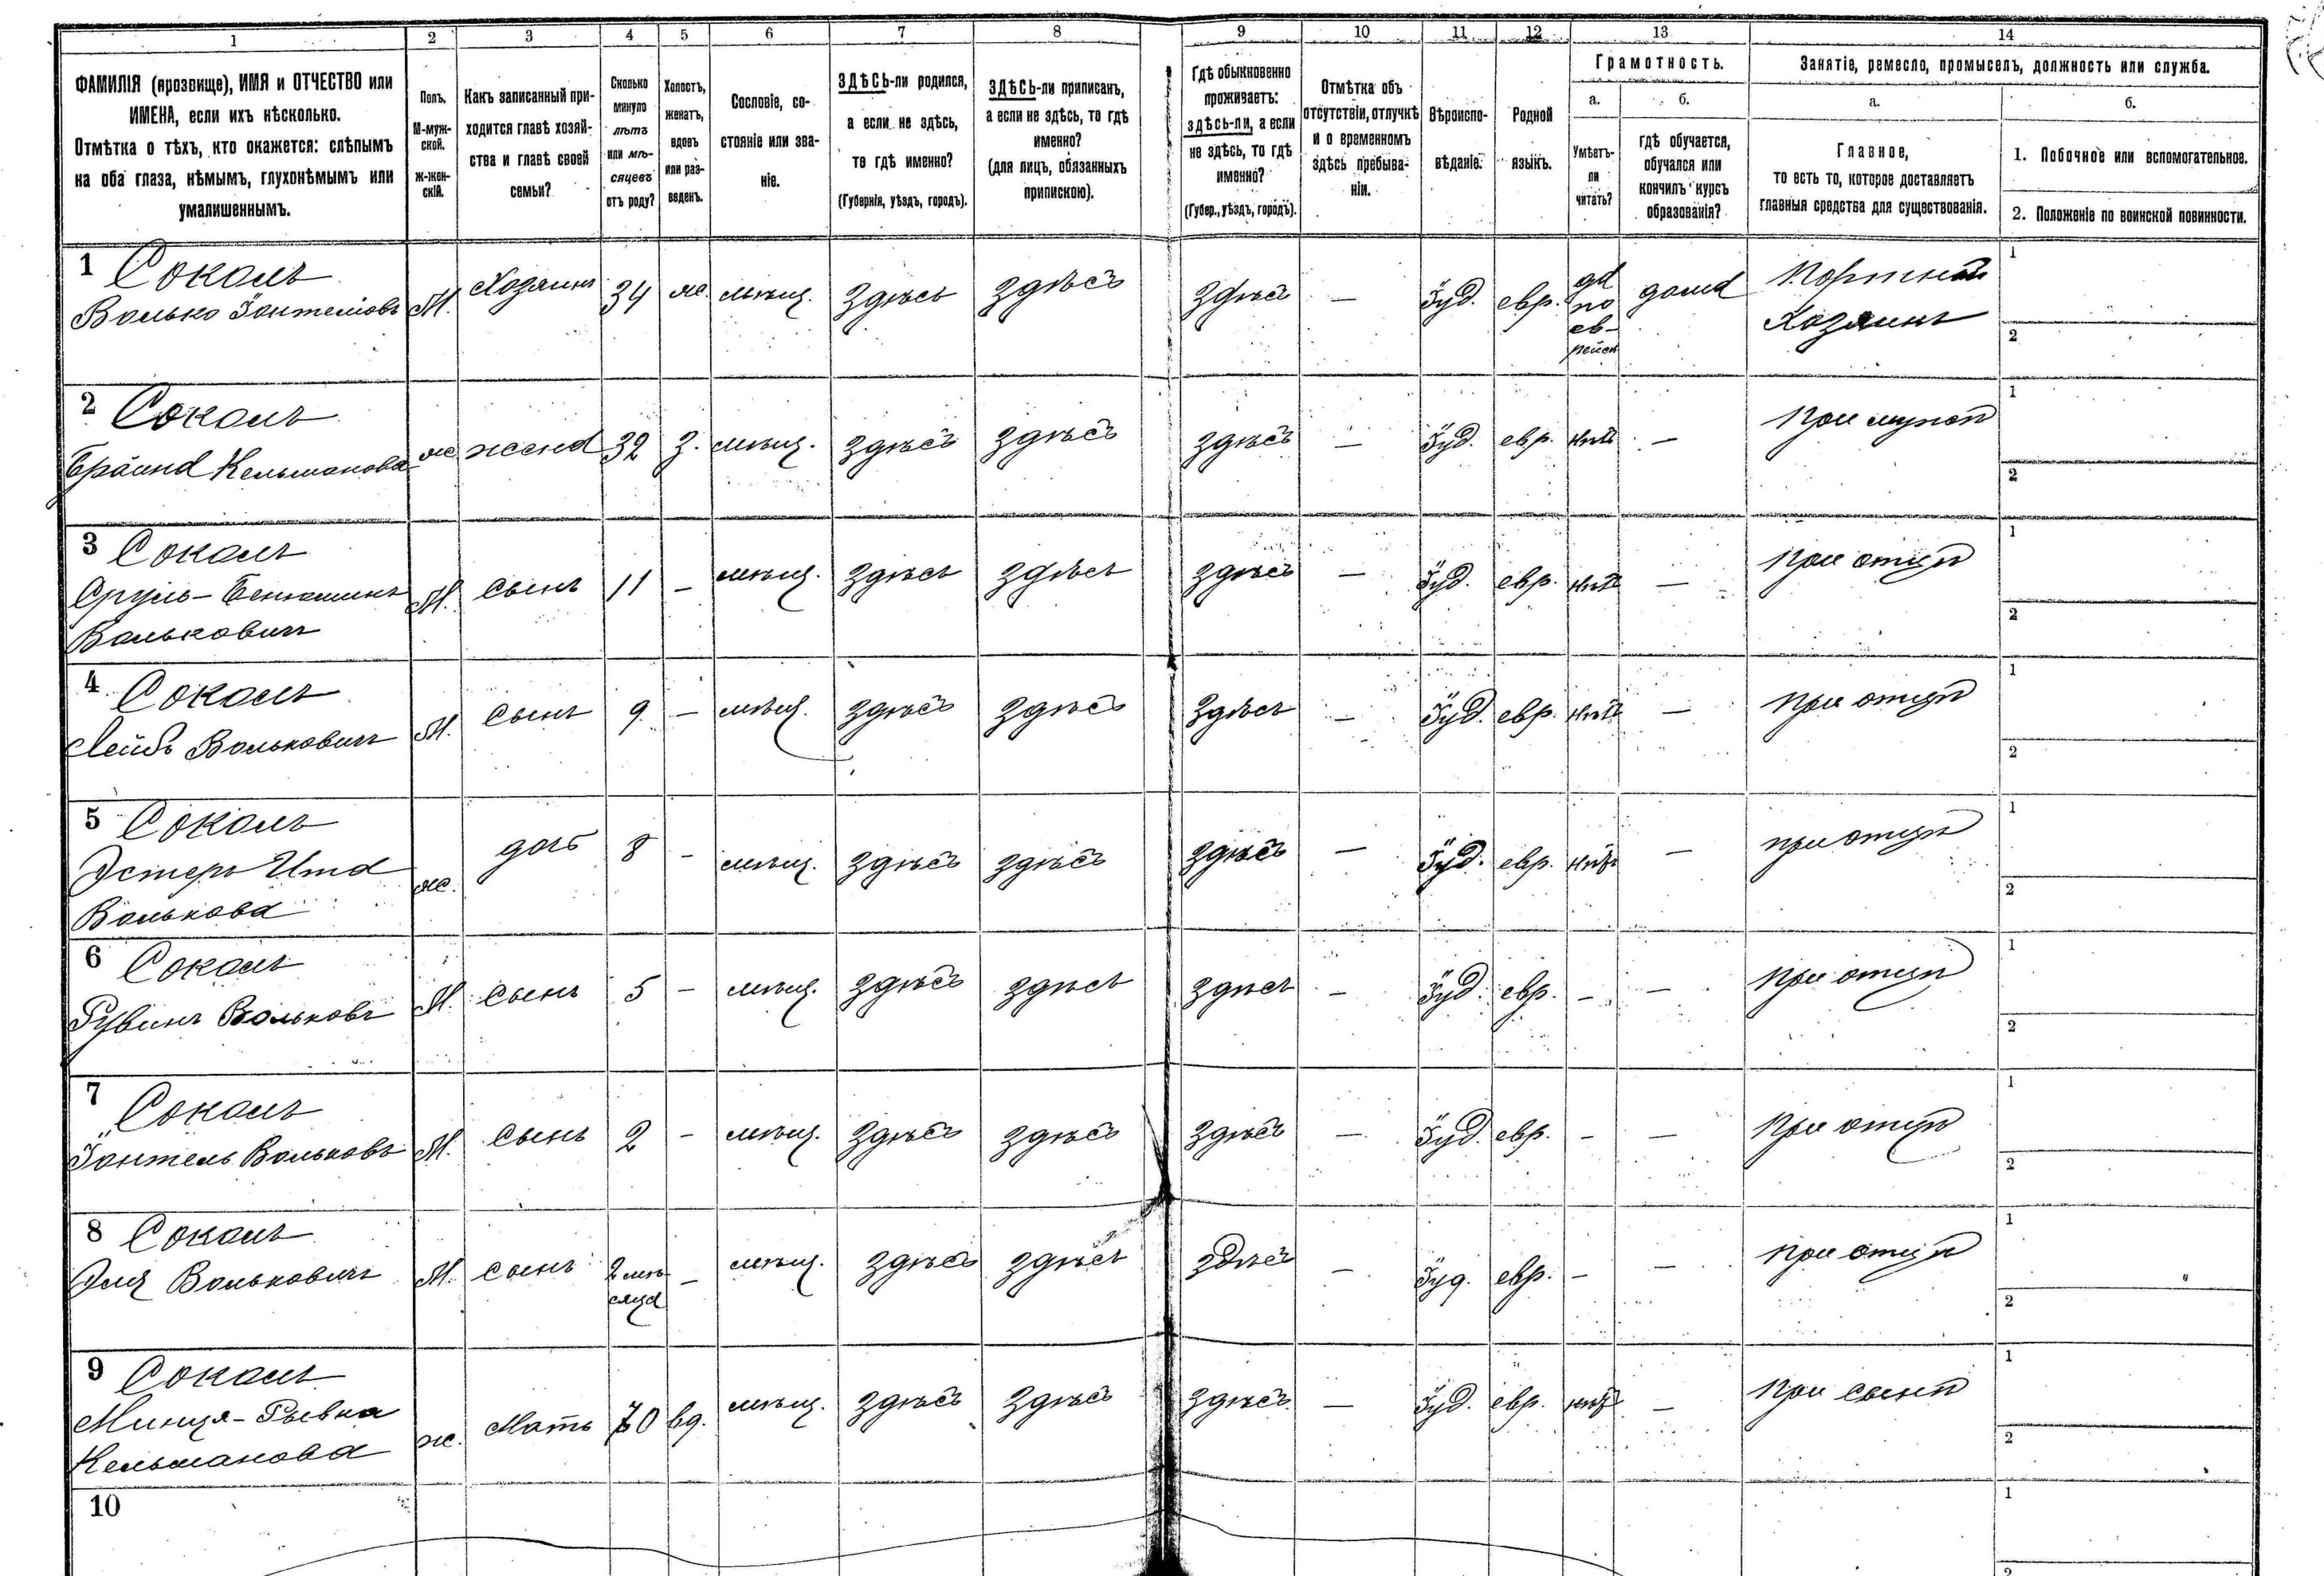 1 2 3 4 5 6 7 8 9 10 11 12 13 14
ФАМИЛІЯ (прозвище), ИМЯ и ОТЧЕСТВО или
ИМЕНА, если ихъ нѣсколько.
Отмѣтка о тѣхъ, кто окажется: слѣпымъ
на оба глаза, нѣмымъ, глухонѣмымъ или
умалишеннымъ.
Полъ.
М-муж-
ской.
ж-жен-
скій.
Какъ записанный при-
ходится главѣ хозяй-
ства и главѣ своей
семьи?
Сколько
минуло
лѣтъ
или мѣ-
сяцевъ
отъ роду?
Холостъ,
женатъ,
вдовъ
или раз-
веденъ.
Сословіе, со-
стояніе или зва-
ніе.
ЗДѢСЬ-ли родился,
а если не здѣсь,
то гдѣ именно?
(Губернія, уѣздъ, городъ).
ЗДѢСЬ-ли приписанъ,
а если не здѣсь, то гдѣ
именно?
(для лицъ, обязанныхъ
припискою).
Гдѣ обыкновенно
проживаетъ:
здѣсь-ли, а если
не здѣсь, то гдѣ
именно?
(Губер., уѣздъ, городъ).
Отмѣтка объ
отсутствіи, отлучкѣ
и о временномъ
здѣсь пребыва-
ніи.
Вѣроиспо-
вѣданіе.
Родной
языкъ.
Грамотность.
а.
Умѣетъ-
ли
читать?
б.
гдѣ обучается,
обучался или
кончилъ курсъ
образованія?
Занятіе, ремесло, промыселъ, должность или служба.
а.
Главное,
то есть то, которое доставляетъ
главныя средства для существованія.
б.
1. Побочное или вспомогательное.
2. Положеніе по воинской повинности.
1 Соколъ
Волько Іонтеліовъ М. Хозяинъ 34 ж. мѣщ. Здѣсь Здѣсь Здѣсь — Іуд. евр. да по ев-рейск дома Портной Хозяинъ 1 2
2 Соколъ
Брайна Кельманова ж жена 32 З. мѣщ. здѣсь здѣсь здѣсь — Іуд. евр. нѣтъ — При мужѣ 1 2
3 Соколъ
Сруль-Бенюминъ
Вольковичъ М. Сынъ 11 – мѣщ. здѣсь здѣсь здѣсь — Іуд. евр. нѣтъ — При отцѣ 1 2
4 Соколъ
Лейбъ Вольковичъ М. Сынъ 9 – мѣщ. здѣсь здѣсь здѣсь — Іуд. евр. нѣтъ — При отцѣ 1 2
5 Соколъ
Эстеръ Ита
Волькова ж. дочь 8 – мѣщ. здѣсь здѣсь здѣсь — Іуд. евр. нѣтъ — при отцѣ 1 2
6 Соколъ
Рувинъ Вольковъ М. Сынъ 5 – мѣщ. здѣсь здѣсь здѣсь — Іуд. евр. – — При отцѣ 1 2
7 Соколъ
Іонтель Вольковъ М. Сынъ 2 – мѣщ. здѣсь здѣсь здѣсь — Іуд. евр. – — При отцѣ 1 2
8 Соколъ
Эля Вольковичъ М. Сынъ 2 мѣ-сяца – мѣщ. здѣсь здѣсь здѣсь — Іуд. евр. – — При отцѣ 1 2
9 Соколъ
Минця-Рывка
Кельманова ж. Мать 70 вд. мѣщ. здѣсь здѣсь здѣсь — Іуд. евр. нѣтъ — При сынѣ 1 2
10 1 2